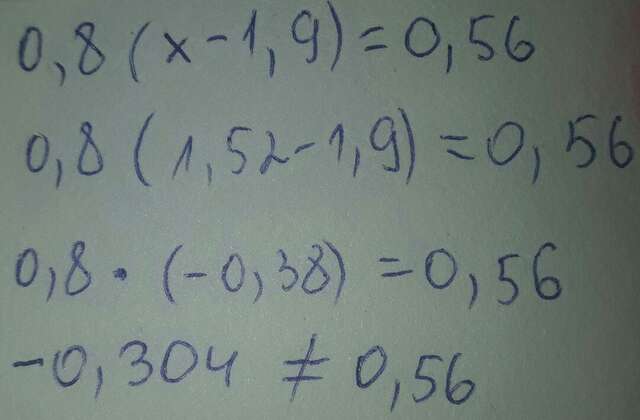 0,8(x-1,9)=0,56
0,8(1,52-1,9)=0,56
0,8·(-0,38)=0,56
-0,304≠0,56